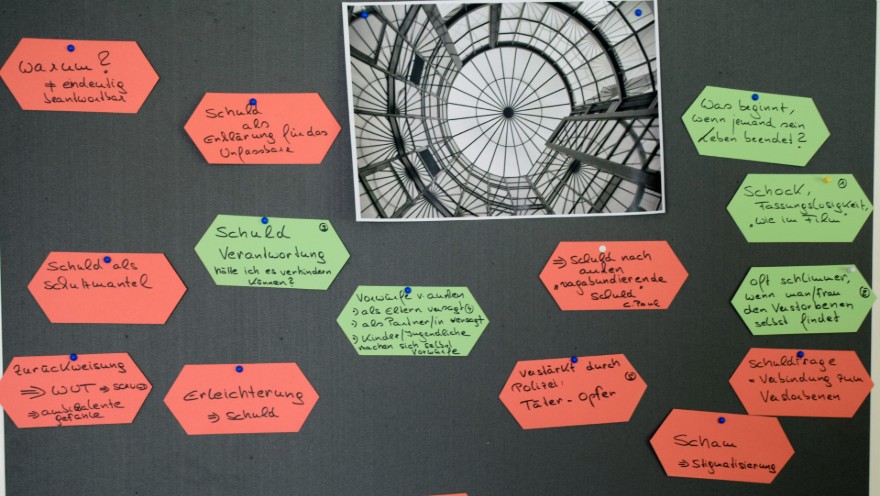 Warum?
≠ eindeutig
beantwortbar
Schuld
als
Erklärung für das
Unfassbare
Was beginnt,
wenn jemand sein
Leben beendet?
Schock,
Fassungslosigkeit,
"wie im Film"
Schuld
Verantwortung
hätte ich es verhindern
können?
Schuld als
Schutzmantel
⇒ Schuld nach
außen
"vagabundierende
Schuld"
C. Paul
oft schlimmer,
wenn man/frau
den Verstorbenen
selbst findet
Vorwürfe v. außen
→ als Eltern versagt
→ als Partner/in versagt
→ Kinder/Jugendliche
machen sich selbst
Vorwürfe
Zurückweisung
⇒ WUT ⇒ Schuld
⇒ ambivalente
Gefühle
Erleichterung
⇒ Schuld
verstärkt durch
Polizei:
Täter - Opfer
Schuldfrage
= Verbindung zum
Verstorbenen
Scham
⇒ Stigmatisierung